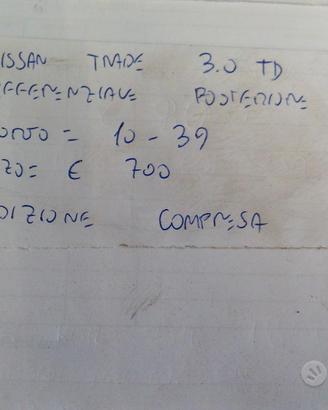 ISSAN TRADE 3.0 TD
FFERENZIALE POSTERIORE
ORTO = 10 - 39
ZO = € 700
DIZIONE COMPRESA